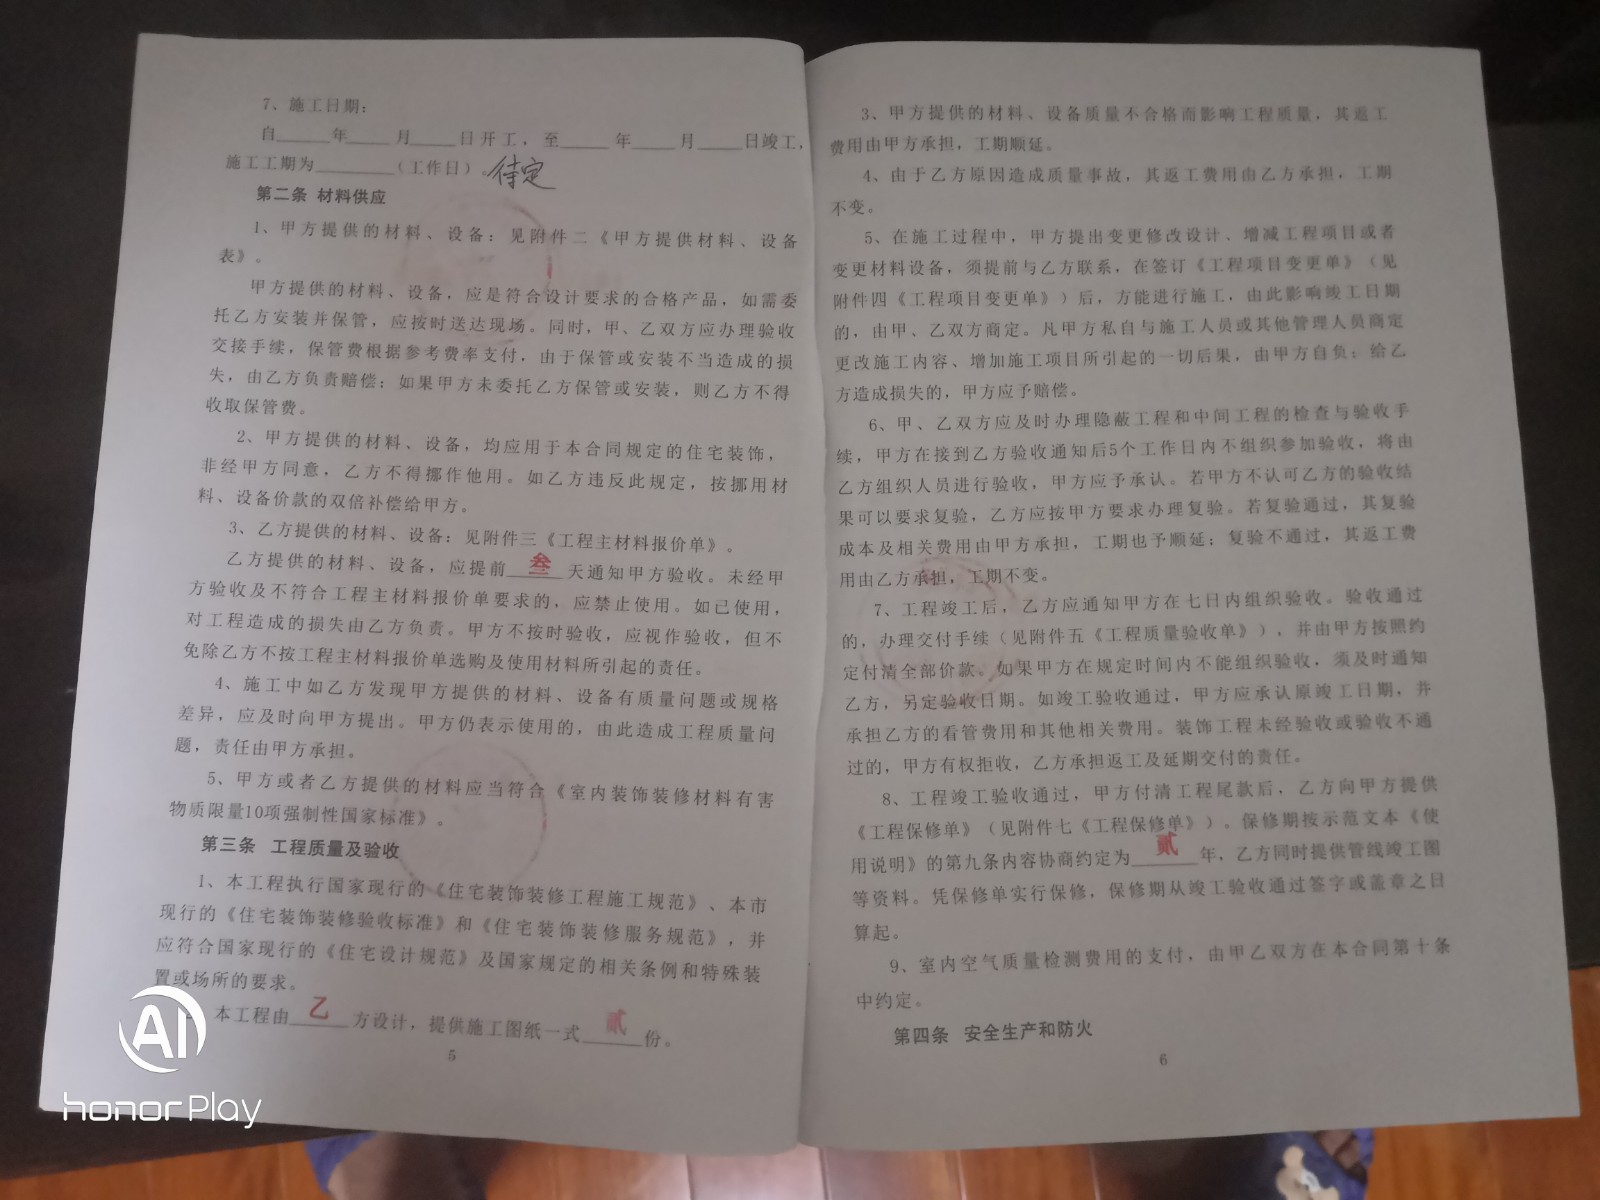 7、施工日期：
自______年_____月_____日开工，至_____年_____月_____日竣工，
施工工期为_________（工作日）。待定
第二条 材料供应
1、甲方提供的材料、设备：见附件二《甲方提供材料、设备
表》。
甲方提供的材料、设备，应是符合设计要求的合格产品，如需委
托乙方安装并保管，应按时送达现场。同时，甲、乙双方应办理验收
交接手续，保管费根据参考费率支付，由于保管或安装不当造成的损
失，由乙方负责赔偿；如果甲方未委托乙方保管或安装，则乙方不得
收取保管费。
2、甲方提供的材料、设备，均应用于本合同规定的住宅装饰，
非经甲方同意，乙方不得挪作他用。如乙方违反此规定，按挪用材
料、设备价款的双倍补偿给甲方。
3、乙方提供的材料、设备：见附件三《工程主材料报价单》。
乙方提供的材料、设备，应提前__叁__天通知甲方验收。未经甲
方验收及不符合工程主材料报价单要求的，应禁止使用。如已使用，
对工程造成的损失由乙方负责。甲方不按时验收，应视作验收，但不
免除乙方不按工程主材料报价单选购及使用材料所引起的责任。
4、施工中如乙方发现甲方提供的材料、设备有质量问题或规格
差异，应及时向甲方提出。甲方仍表示使用的，由此造成工程质量问
题，责任由甲方承担。
5、甲方或者乙方提供的材料应当符合《室内装饰装修材料有害
物质限量10项强制性国家标准》。
第三条 工程质量及验收
1、本工程执行国家现行的《住宅装饰装修工程施工规范》、本市
现行的《住宅装饰装修验收标准》和《住宅装饰装修服务规范》，并
应符合国家现行的《住宅设计规范》及国家规定的相关条例和特殊装
置或场所的要求。
本工程由__乙__方设计，提供施工图纸一式__贰__份。
5
AI
honor Play
3、甲方提供的材料、设备质量不合格而影响工程质量，其返工
费用由甲方承担，工期顺延。
4、由于乙方原因造成质量事故，其返工费用由乙方承担，工期
不变。
5、在施工过程中，甲方提出变更修改设计、增减工程项目或者
变更材料设备，须提前与乙方联系，在签订《工程项目变更单》（见
附件四《工程项目变更单》）后，方能进行施工，由此影响竣工日期
的，由甲、乙双方商定。凡甲方私自与施工人员或其他管理人员商定
更改施工内容、增加施工项目所引起的一切后果，由甲方自负；给乙
方造成损失的，甲方应予赔偿。
6、甲、乙双方应及时办理隐蔽工程和中间工程的检查与验收手
续，甲方在接到乙方验收通知后5个工作日内不组织参加验收，将由
乙方组织人员进行验收，甲方应予承认。若甲方不认可乙方的验收结
果可以要求复验，乙方应按甲方要求办理复验。若复验通过，其复验
成本及相关费用由甲方承担，工期也予顺延；复验不通过，其返工费
用由乙方承担，工期不变。
7、工程竣工后，乙方应通知甲方在七日内组织验收。验收通过
的，办理交付手续（见附件五《工程质量验收单》），并由甲方按照约
定付清全部价款。如果甲方在规定时间内不能组织验收，须及时通知
乙方，另定验收日期。如竣工验收通过，甲方应承认原竣工日期，并
承担乙方的看管费用和其他相关费用。装饰工程未经验收或验收不通
过的，甲方有权拒收，乙方承担返工及延期交付的责任。
8、工程竣工验收通过，甲方付清工程尾款后，乙方向甲方提供
《工程保修单》（见附件七《工程保修单》）。保修期按示范文本《使
用说明》的第九条内容协商约定为__贰__年，乙方同时提供管线竣工图
等资料。凭保修单实行保修，保修期从竣工验收通过签字或盖章之日
算起。
9、室内空气质量检测费用的支付，由甲乙双方在本合同第十条
中约定。
第四条 安全生产和防火
6